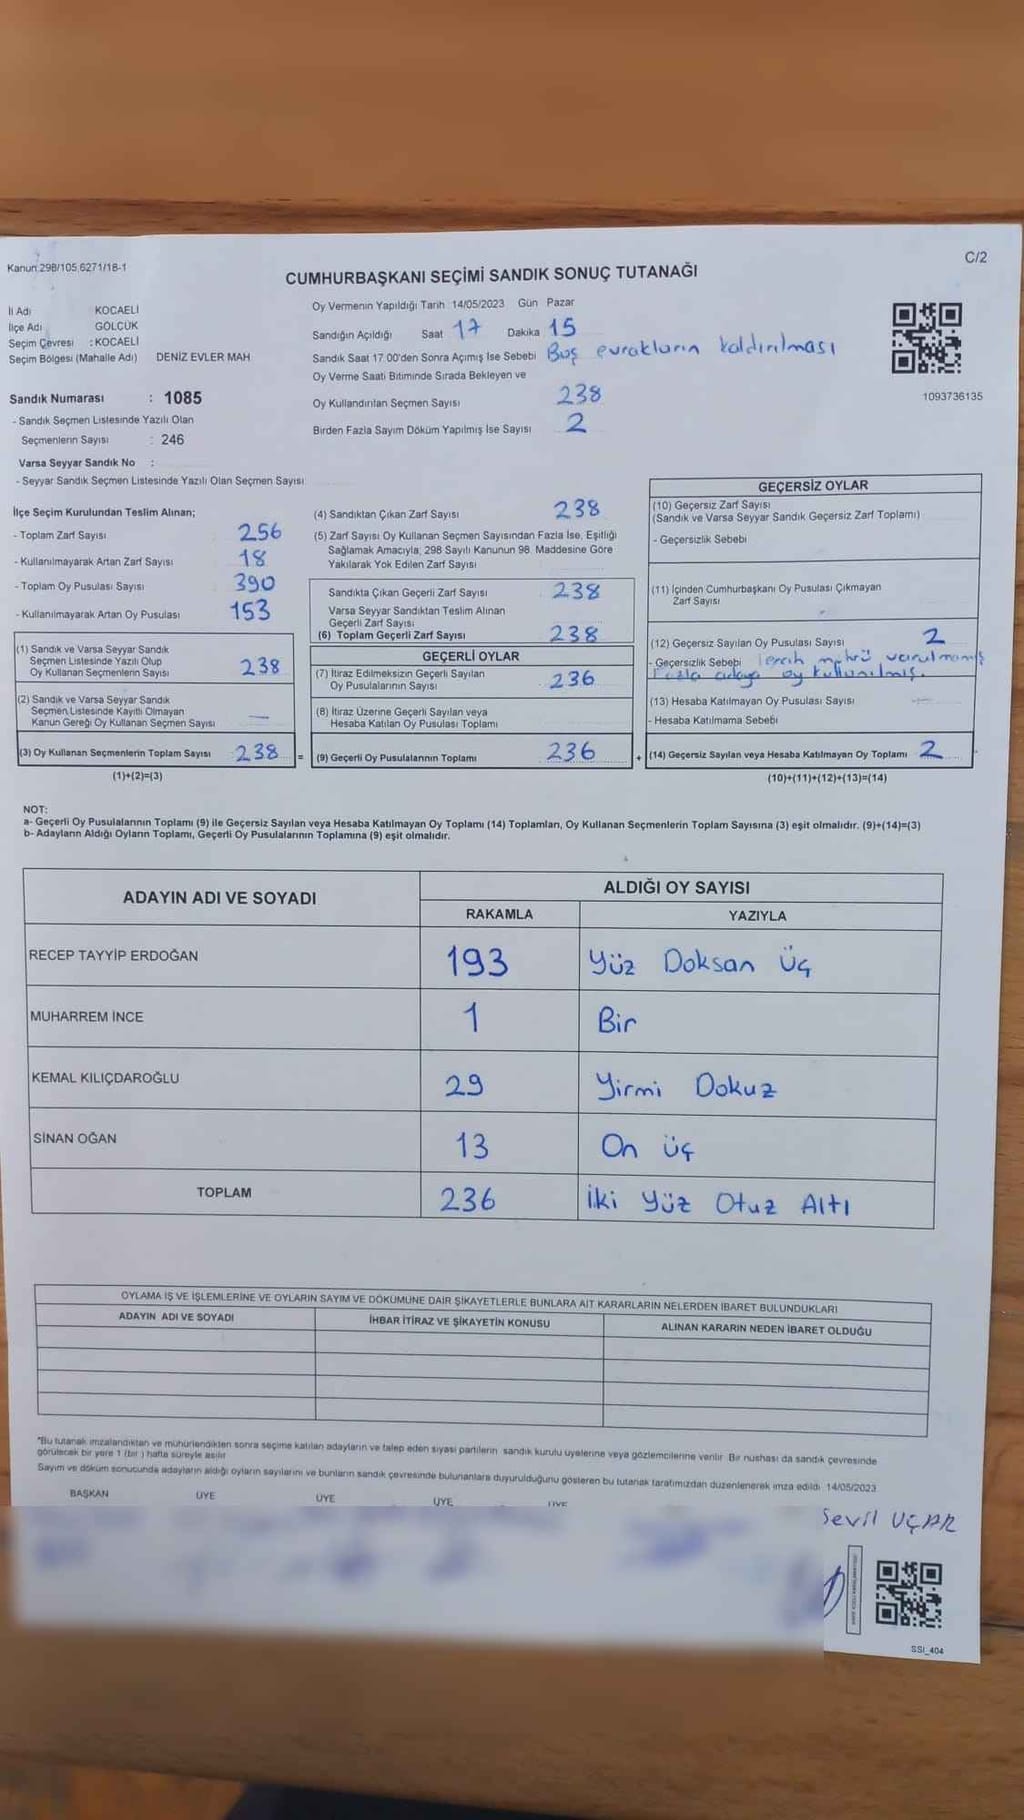 Kanun:298/105,6271/18-1
C/2
CUMHURBAŞKANI SEÇİMİ SANDIK SONUÇ TUTANAĞI
İl Adı KOCAELİ
İlçe Adı GÖLCÜK
Seçim Çevresi : KOCAELİ
Seçim Bölgesi (Mahalle Adı) DENİZ EVLER MAH
Sandık Numarası : 1085
- Sandık Seçmen Listesinde Yazılı Olan
Seçmenlerin Sayısı : 246
Varsa Seyyar Sandık No :
- Seyyar Sandık Seçmen Listesinde Yazılı Olan Seçmen Sayısı:
Oy Vermenin Yapıldığı Tarih : 14/05/2023 Gün Pazar
Sandığın Açıldığı Saat 17 Dakika 15
Sandık Saat 17.00'den Sonra Açımış İse Sebebi Boş evrakların kaldırılması
Oy Verme Saati Bitiminde Sırada Bekleyen ve
Oy Kullandırılan Seçmen Sayısı 238
Birden Fazla Sayım Döküm Yapılmış İse Sayısı 2
1093736135
İlçe Seçim Kurulundan Teslim Alınan;
- Toplam Zarf Sayısı 256
- Kullanılmayarak Artan Zarf Sayısı 18
- Toplam Oy Pusulası Sayısı 390
- Kullanılmayarak Artan Oy Pusulası 153
(1) Sandık ve Varsa Seyyar Sandık
Seçmen Listesinde Yazılı Olup
Oy Kullanan Seçmenlerin Sayısı 238
(2) Sandık ve Varsa Seyyar Sandık
Seçmen Listesinde Kayıtlı Olmayan
Kanun Gereği Oy Kullanan Seçmen Sayısı —
(3) Oy Kullanan Seçmenlerin Toplam Sayısı 238 =
(1)+(2)=(3)
(4) Sandıktan Çıkan Zarf Sayısı 238
(5) Zarf Sayısı Oy Kullanan Seçmen Sayısından Fazla İse, Eşitliği
Sağlamak Amacıyla; 298 Sayılı Kanunun 98. Maddesine Göre
Yakılarak Yok Edilen Zarf Sayısı
Sandıkta Çıkan Geçerli Zarf Sayısı 238
Varsa Seyyar Sandıktan Teslim Alınan
Geçerli Zarf Sayısı
(6) Toplam Geçerli Zarf Sayısı 238
GEÇERLİ OYLAR
(7) İtiraz Edilmeksizin Geçerli Sayılan
Oy Pusulalarının Sayısı 236
(8) İtiraz Üzerine Geçerli Sayılan veya
Hesaba Katılan Oy Pusulası Toplamı
(9) Geçerli Oy Pusulalarının Toplamı 236 +
GEÇERSİZ OYLAR
(10) Geçersiz Zarf Sayısı
(Sandık ve Varsa Seyyar Sandık Geçersiz Zarf Toplamı)
- Geçersizlik Sebebi
(11) İçinden Cumhurbaşkanı Oy Pusulası Çıkmayan
Zarf Sayısı
(12) Geçersiz Sayılan Oy Pusulası Sayısı 2
- Geçersizlik Sebebi Tercih mührü vurulmamış
Fazla adaya oy kullanılmış.
(13) Hesaba Katılmayan Oy Pusulası Sayısı
- Hesaba Katılmama Sebebi
(14) Geçersiz Sayılan veya Hesaba Katılmayan Oy Toplamı 2
(10)+(11)+(12)+(13)=(14)
NOT:
a- Geçerli Oy Pusulalarının Toplamı (9) ile Geçersiz Sayılan veya Hesaba Katılmayan Oy Toplamı (14) Toplamları, Oy Kullanan Seçmenlerin Toplam Sayısına (3) eşit olmalıdır. (9)+(14)=(3)
b- Adayların Aldığı Oyların Toplamı, Geçerli Oy Pusulalarının Toplamına (9) eşit olmalıdır.
ADAYIN ADI VE SOYADI ALDIĞI OY SAYISI
RAKAMLA YAZIYLA
RECEP TAYYİP ERDOĞAN 193 Yüz Doksan Üç
MUHARREM İNCE 1 Bir
KEMAL KILIÇDAROĞLU 29 Yirmi Dokuz
SİNAN OĞAN 13 On üç
TOPLAM 236 İki Yüz Otuz Altı
OYLAMA İŞ VE İŞLEMLERİNE VE OYLARIN SAYIM VE DÖKÜMÜNE DAİR ŞİKAYETLERLE BUNLARA AİT KARARLARIN NELERDEN İBARET BULUNDUKLARI
ADAYIN ADI VE SOYADI İHBAR İTİRAZ VE ŞİKAYETİN KONUSU ALINAN KARARIN NEDEN İBARET OLDUĞU
*Bu tutanak imzalandıktan ve mühürlendikten sonra seçime katılan adayların ve talep eden siyasi partilerin sandık kurulu üyelerine veya gözlemcilerine verilir. Bir nüshası da sandık çevresinde
görülecek bir yere 1 (bir ) hafta süreyle asılır
Sayım ve döküm sonucunda adayların aldığı oyların sayılarını ve bunların sandık çevresinde bulunanlara duyurulduğunu gösteren bu tutanak tarafımızdan düzenlenerek imza edildi. 14/05/2023
BAŞKAN ÜYE ÜYE ÜYE ÜYE
Sevil UÇAR
SSI_404